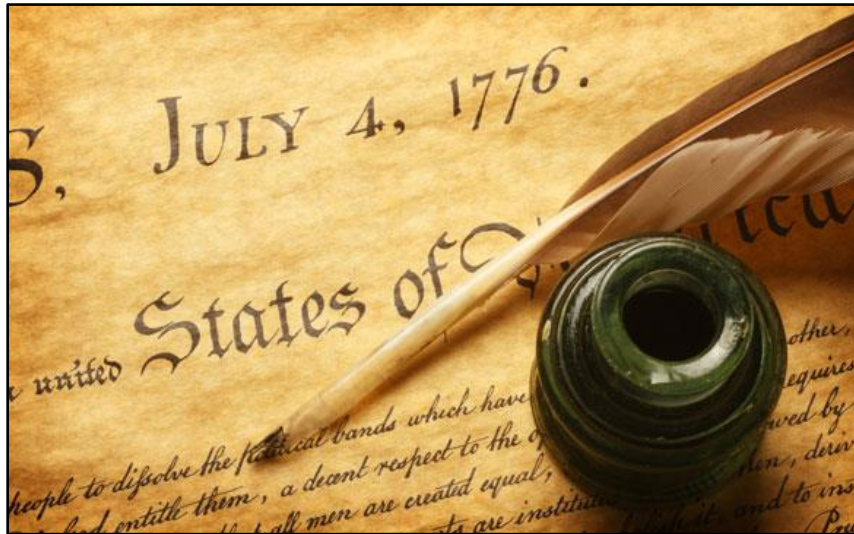 S, JULY 4, 1776.
united States of
people to dissolve the political bands which have other,
entitle them, a decent respect to the requires
all men are created equal, men, deriv
are instit owed by
it, and to ins